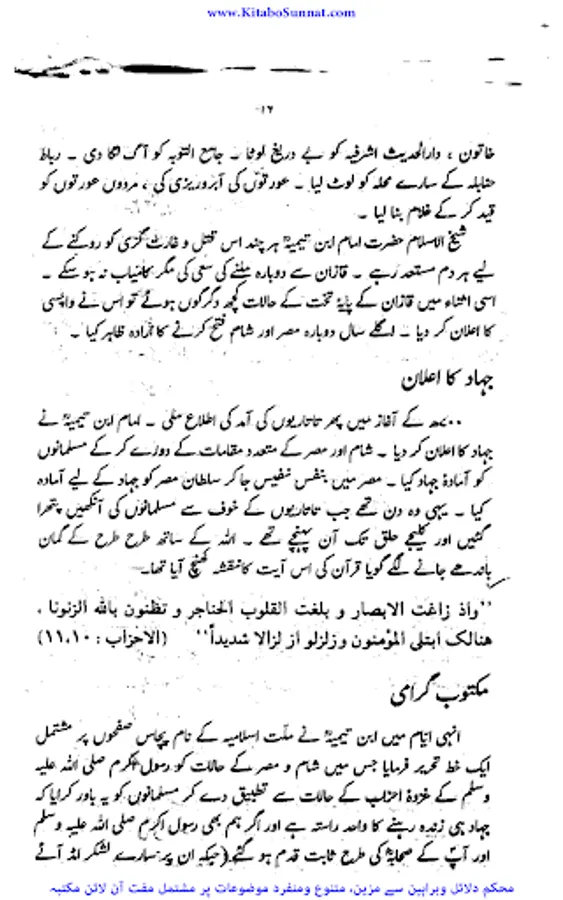 www.KitaboSunnat.com
۱۲
خاتون ، دارالحدیث اشرفیہ کو بے دریغ لوٹا ۔ جامع التوبہ کو آگ لگا دی ۔ رباط
حنابلہ کے سارے محلہ کو لوٹ لیا ۔ عورتوں کی آبروریزی کی ، مردوں عورتوں کو
قید کر کے غلام بنا لیا ۔
شیخ الاسلام حضرت امام ابن تیمیہؒ ہر چند اس قتل و غارت گری کو روکنے کے
لیے ہر دم مستعد رہے ۔ قازان سے دوبارہ ملنے کی سعی کی مگر کامیاب نہ ہو سکے ۔
اسی اثناء میں قازان کے پایۂ تخت کے حالات کچھ دگرگوں ہوئے تو اس نے واپسی
کا اعلان کر دیا ۔ اگلے سال دوبارہ مصر اور شام فتح کرنے کا ارادہ ظاہر کیا ۔
جہاد کا اعلان
۷۰۰ھ کے آغاز میں پھر تاتاریوں کی آمد کی اطلاع ملی ۔ امام ابن تیمیہؒ نے
جہاد کا اعلان کر دیا ۔ شام اور مصر کے متعدد مقامات کے دورے کر کے مسلمانوں
کو آمادۂ جہاد کیا ۔ مصر میں بنفس نفیس جا کر سلطان مصر کو جہاد کے لیے آمادہ
کیا ۔ یہی وہ دن تھے جب تاتاریوں کے خوف سے مسلمانوں کی آنکھیں پتھرا
گئیں اور کلیجے حلق تک آن پہنچے تھے ۔ اللہ کے ساتھ طرح طرح کے گمان
باندھے جانے لگے گویا قرآن کی اس آیت کا نقشہ کھنچ آیا تھا۔
''واذ زاغت الابصار و بلغت القلوب الحناجر و تظنون بالله الزنونا ،
هنالک ابتلی المؤمنون وزلزلو از لزالا شدیداً'' (الاحزاب : ۱۱،۱۰)
مکتوب گرامی
انہی ایام میں ابن تیمیہؒ نے ملت اسلامیہ کے نام پچاس صفحوں پر مشتمل
ایک خط تحریر فرمایا جس میں شام و مصر کے حالات کو رسول اکرم صلی اللہ علیہ
وسلم کے غزوۂ احزاب کے حالات سے تطبیق دے کر مسلمانوں کو یہ باور کرایا کہ
جہاد ہی زندہ رہنے کا واحد راستہ ہے اور اگر ہم بھی رسول اکرم صلی اللہ علیہ وسلم
اور آپؐ کے صحابہؓ کی طرح ثابت قدم ہو گئے (جبکہ ان پر سارے لشکر امڈ آئے
محکم دلائل وبراہین سے مزین، متنوع ومنفرد موضوعات پر مشتمل مفت آن لائن مکتبہ